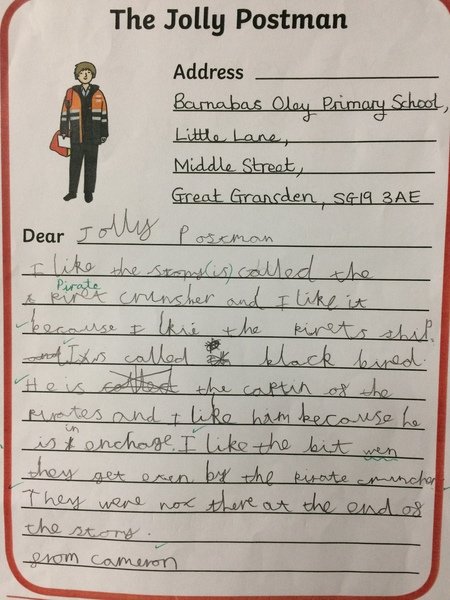 The Jolly Postman
Address
Barnabas Oley Primary School,
Little Lane,
Middle Street,
Great Gransden, SG19 3AE
Dear Jolly Postman
I like the story (is) called the
Pirate
piret crunsher and I like it
because I lkie the pirets ship.
and It is called black bired.
He is called the captin of the
pirates and I like him because he
in
is enchage. I like the bit wen
they get eten by the pirate cruncher
They were not there at the end of
the story.
from cameron